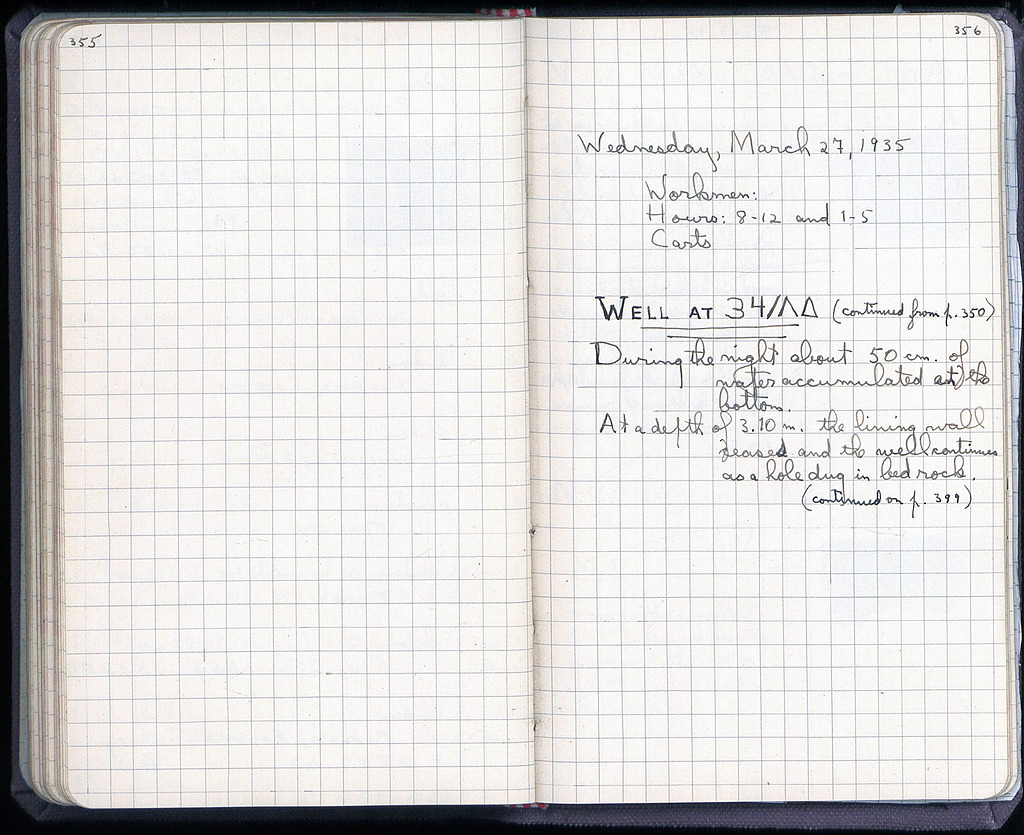 355
356
Wednesday, March 27, 1935
Workmen:
Hours: 8-12 and 1-5
Carts
WELL AT 34/ΛΔ (continued from p. 350)
During the night about 50 cm. of
water accumulated at the
bottom.
At a depth of 3.10 m. the lining wall
ceased and the well continues
as a hole dug in bed rock.
(continued on p. 399)